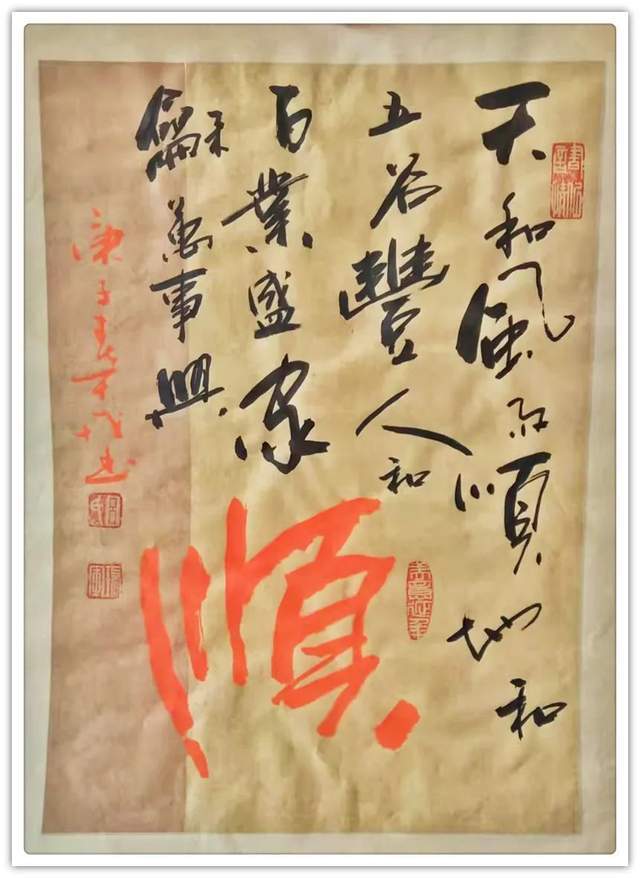 天和風雨順地和
五谷豐人和
百業盛家
龢萬事興
順
庚子春成书